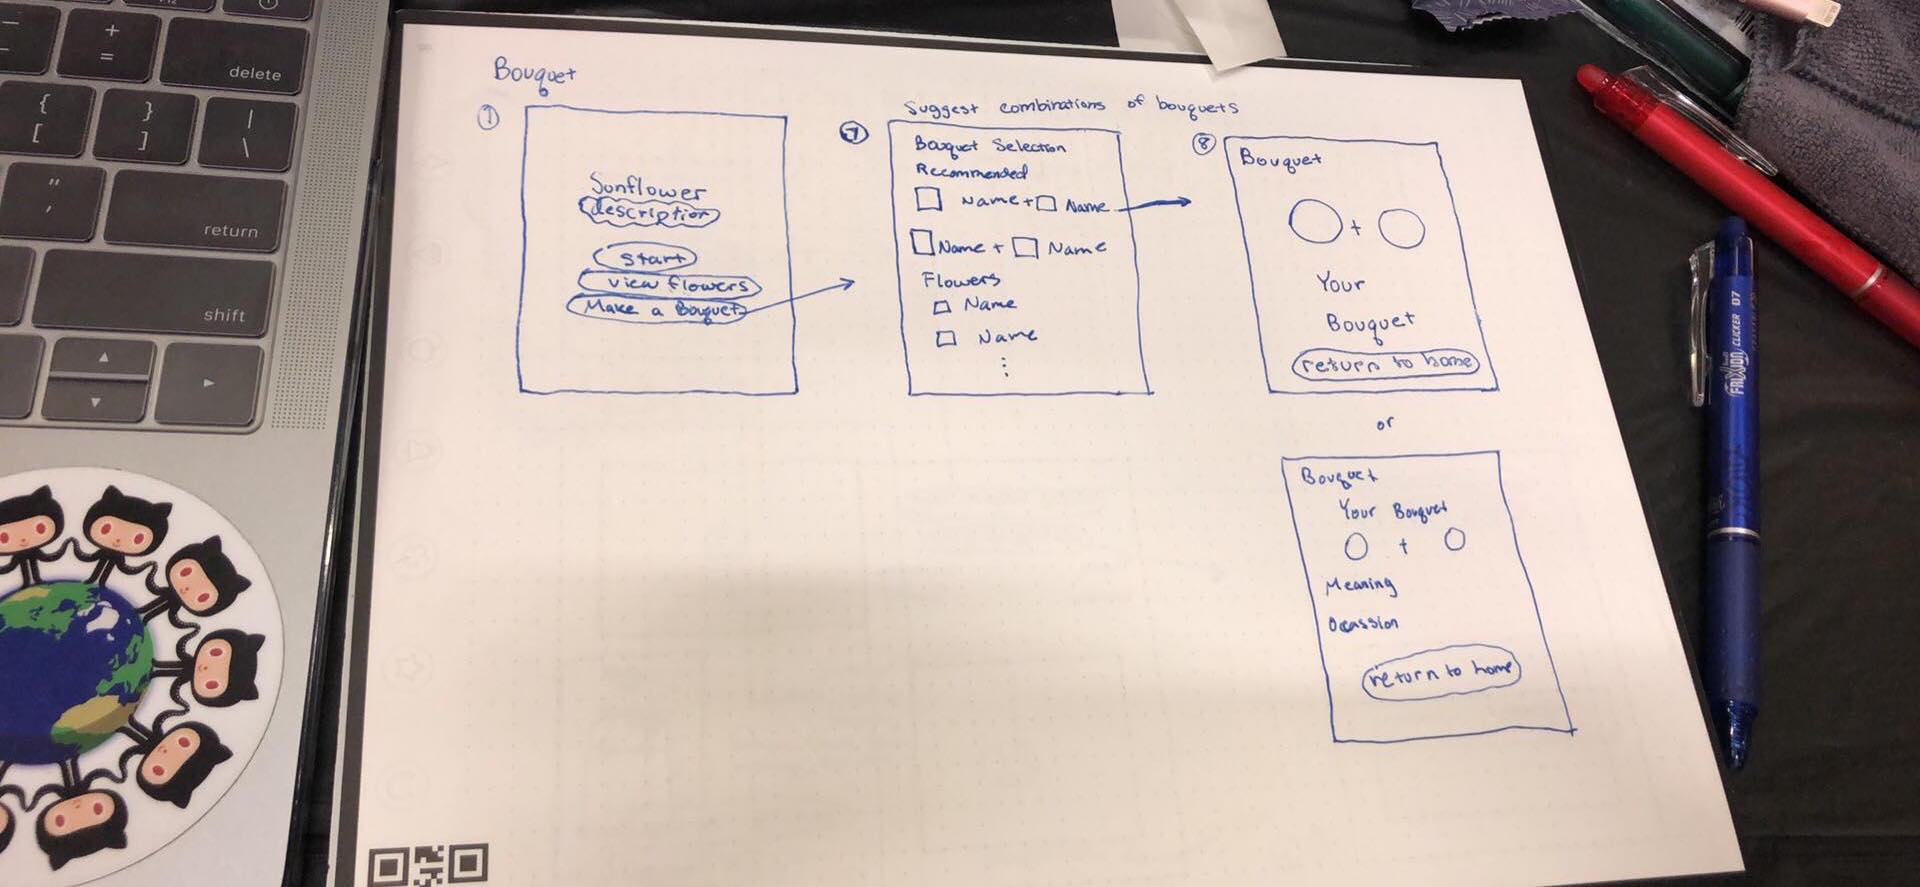 Bouquet
1
Sunflower
description
start
view flowers
Make a Bouquet
Suggest combinations of bouquets
7
Bouquet Selection
Recommended
Name + Name
Name + Name
Flowers
Name
Name
8
Bouquet
+
Your
Bouquet
return to home
or
Bouquet
Your Bouquet
+
Meaning
Ocassion
return to home
+
=
delete
{
[
}
]
|
\
"
'
return
shift
FRIXION CLICKER 07